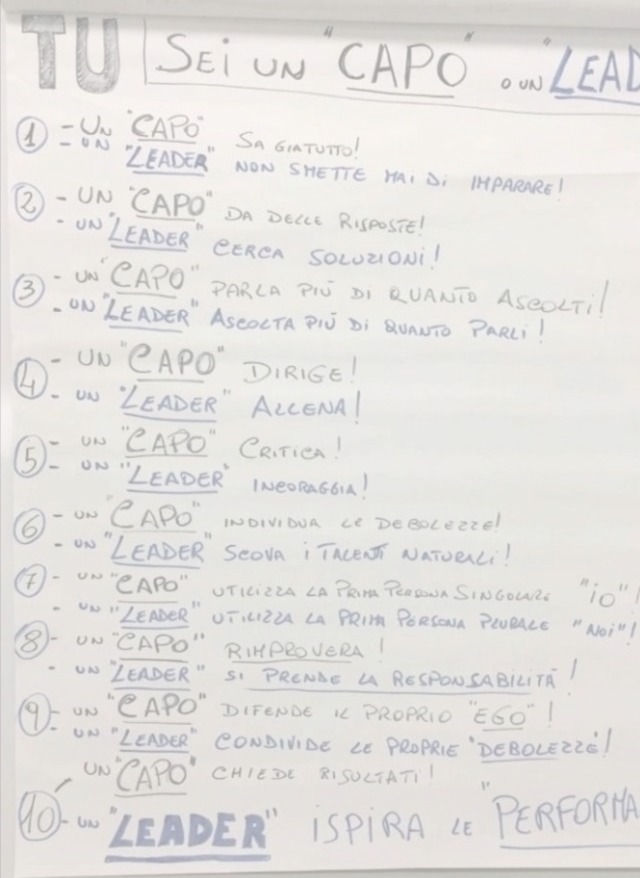 TU SEI UN "CAPO" O UN "LEAD
① - UN "CAPO" SA GIATUTTO!
- UN "LEADER" NON SMETTE MAI DI IMPARARE!
② - UN "CAPO" DA DELLE RISPOSTE!
- UN "LEADER" CERCA SOLUZIONI!
③ - UN "CAPO" PARLA PIÙ DI QUANTO ASCOLTI!
- UN "LEADER" ASCOLTA PIÙ DI QUANTO PARLI!
④ - UN "CAPO" DIRIGE!
- UN "LEADER" ALLENA!
⑤ - UN "CAPO" CRITICA!
- UN "LEADER" INCORAGGIA!
⑥ - UN "CAPO" INDIVIDUA LE DEBOLEZZE!
- UN "LEADER" SCOVA I TALENTI NATURALI!
⑦ - UN "CAPO" UTILIZZA LA PRIMA PERSONA SINGOLARE "IO"!
- UN "LEADER" UTILIZZA LA PRIMA PERSONA PLURALE "NOI"!
⑧ - UN "CAPO" RIMPROVERA!
- UN "LEADER" SI PRENDE LA RESPONSABILITÀ!
⑨ - UN "CAPO" DIFENDE IL PROPRIO "EGO"!
- UN "LEADER" CONDIVIDE LE PROPRIE "DEBOLEZZE"!
⑩ - UN "CAPO" CHIEDE RISULTATI!
- UN "LEADER" ISPIRA LE "PERFORMA